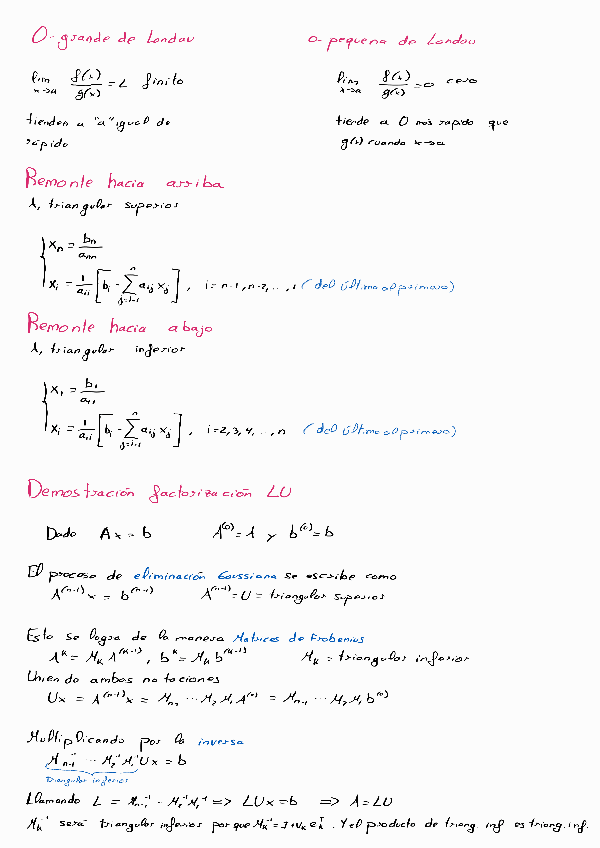 O-grande de Landau
o-pequeña de Landau
lim x→a f(x)/g(x) = L finito
lim x→a f(x)/g(x) = 0 cero
tienden a "a" igual de
rápido
tiende a 0 más rápido que
g(x) cuando x→a
Remonte hacia arriba
A, triangular superior
x_n = b_n/a_nn
x_i = 1/a_ii [b_i - Σ_{j=i+1}^{n} a_ij x_j], i = n-1, n-2, ..., 1 (del último al primero)
Remonte hacia abajo
A, triangular inferior
x_1 = b_1/a_11
x_i = 1/a_ii [b_i - Σ_{j=i+1}^{n} a_ij x_j], i=2,3,4,...,n (del último al primero)
Demostración factorización LU
Dado Ax = b A^(0) = A y b^(0) = b
El proceso de eliminación Gaussiana se escribe como
A^(n-1) x = b^(n-1) A^(n-1) = U = triangular superior
Esto se logra de la manera Matrices de Frobenius
A^K = M_K A^(K-1), b^K = M_K b^(K-1) M_K = triangular inferior
Uniendo ambas notaciones
Ux = A^(n-1) x = M_n-1 ... M_2 M_1 A^(0) = M_n-1 ... M_2 M_1 b^(0)
Multiplicando por la inversa
M_n-1^-1 ... M_2^-1 M_1^-1 Ux = b
Triangular inferior
Llamando L = M_n-1^-1 ... M_2^-1 M_1^-1 => LUx = b => A = LU
M_K^-1 será triangular inferior porque M_K^-1 = I + v_K e_K^T. Y el producto de triang. inf es triang. inf.